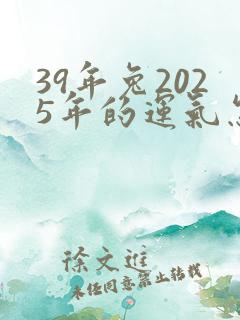 39年兔202
5年的運氣怎
徐文進
未经同意禁止转载